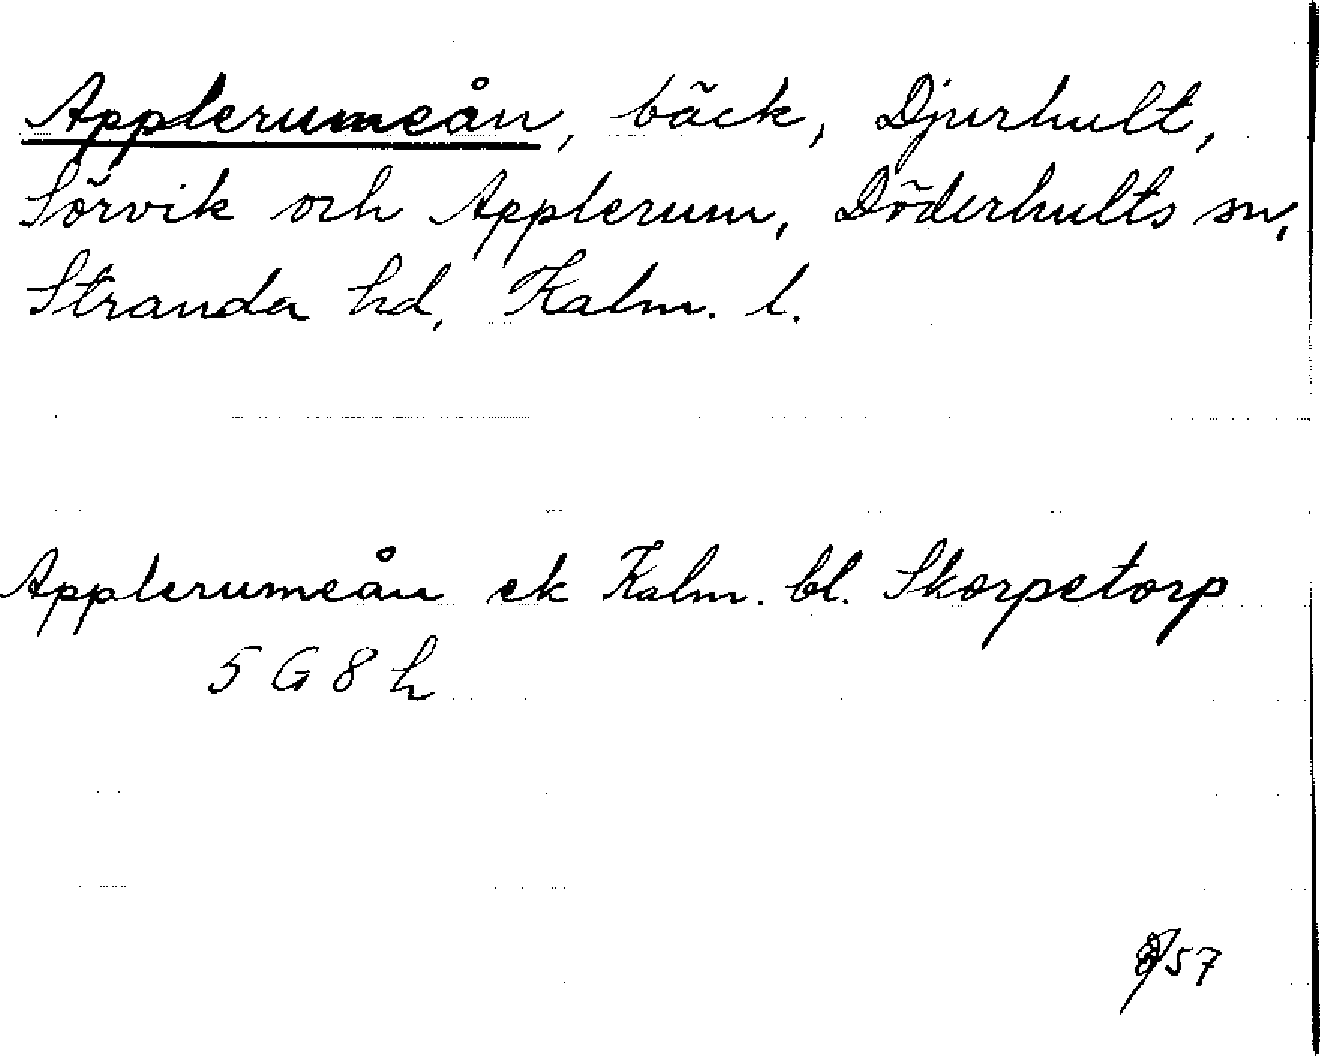 Applerumeån, bäck, Djurhult,
Sörvik och Applerum, Döderhults sn,
Stranda hd, Kalm. l.
Applerumeån ek Kalm. bl. Skorpetorp
5 G 8 h
57